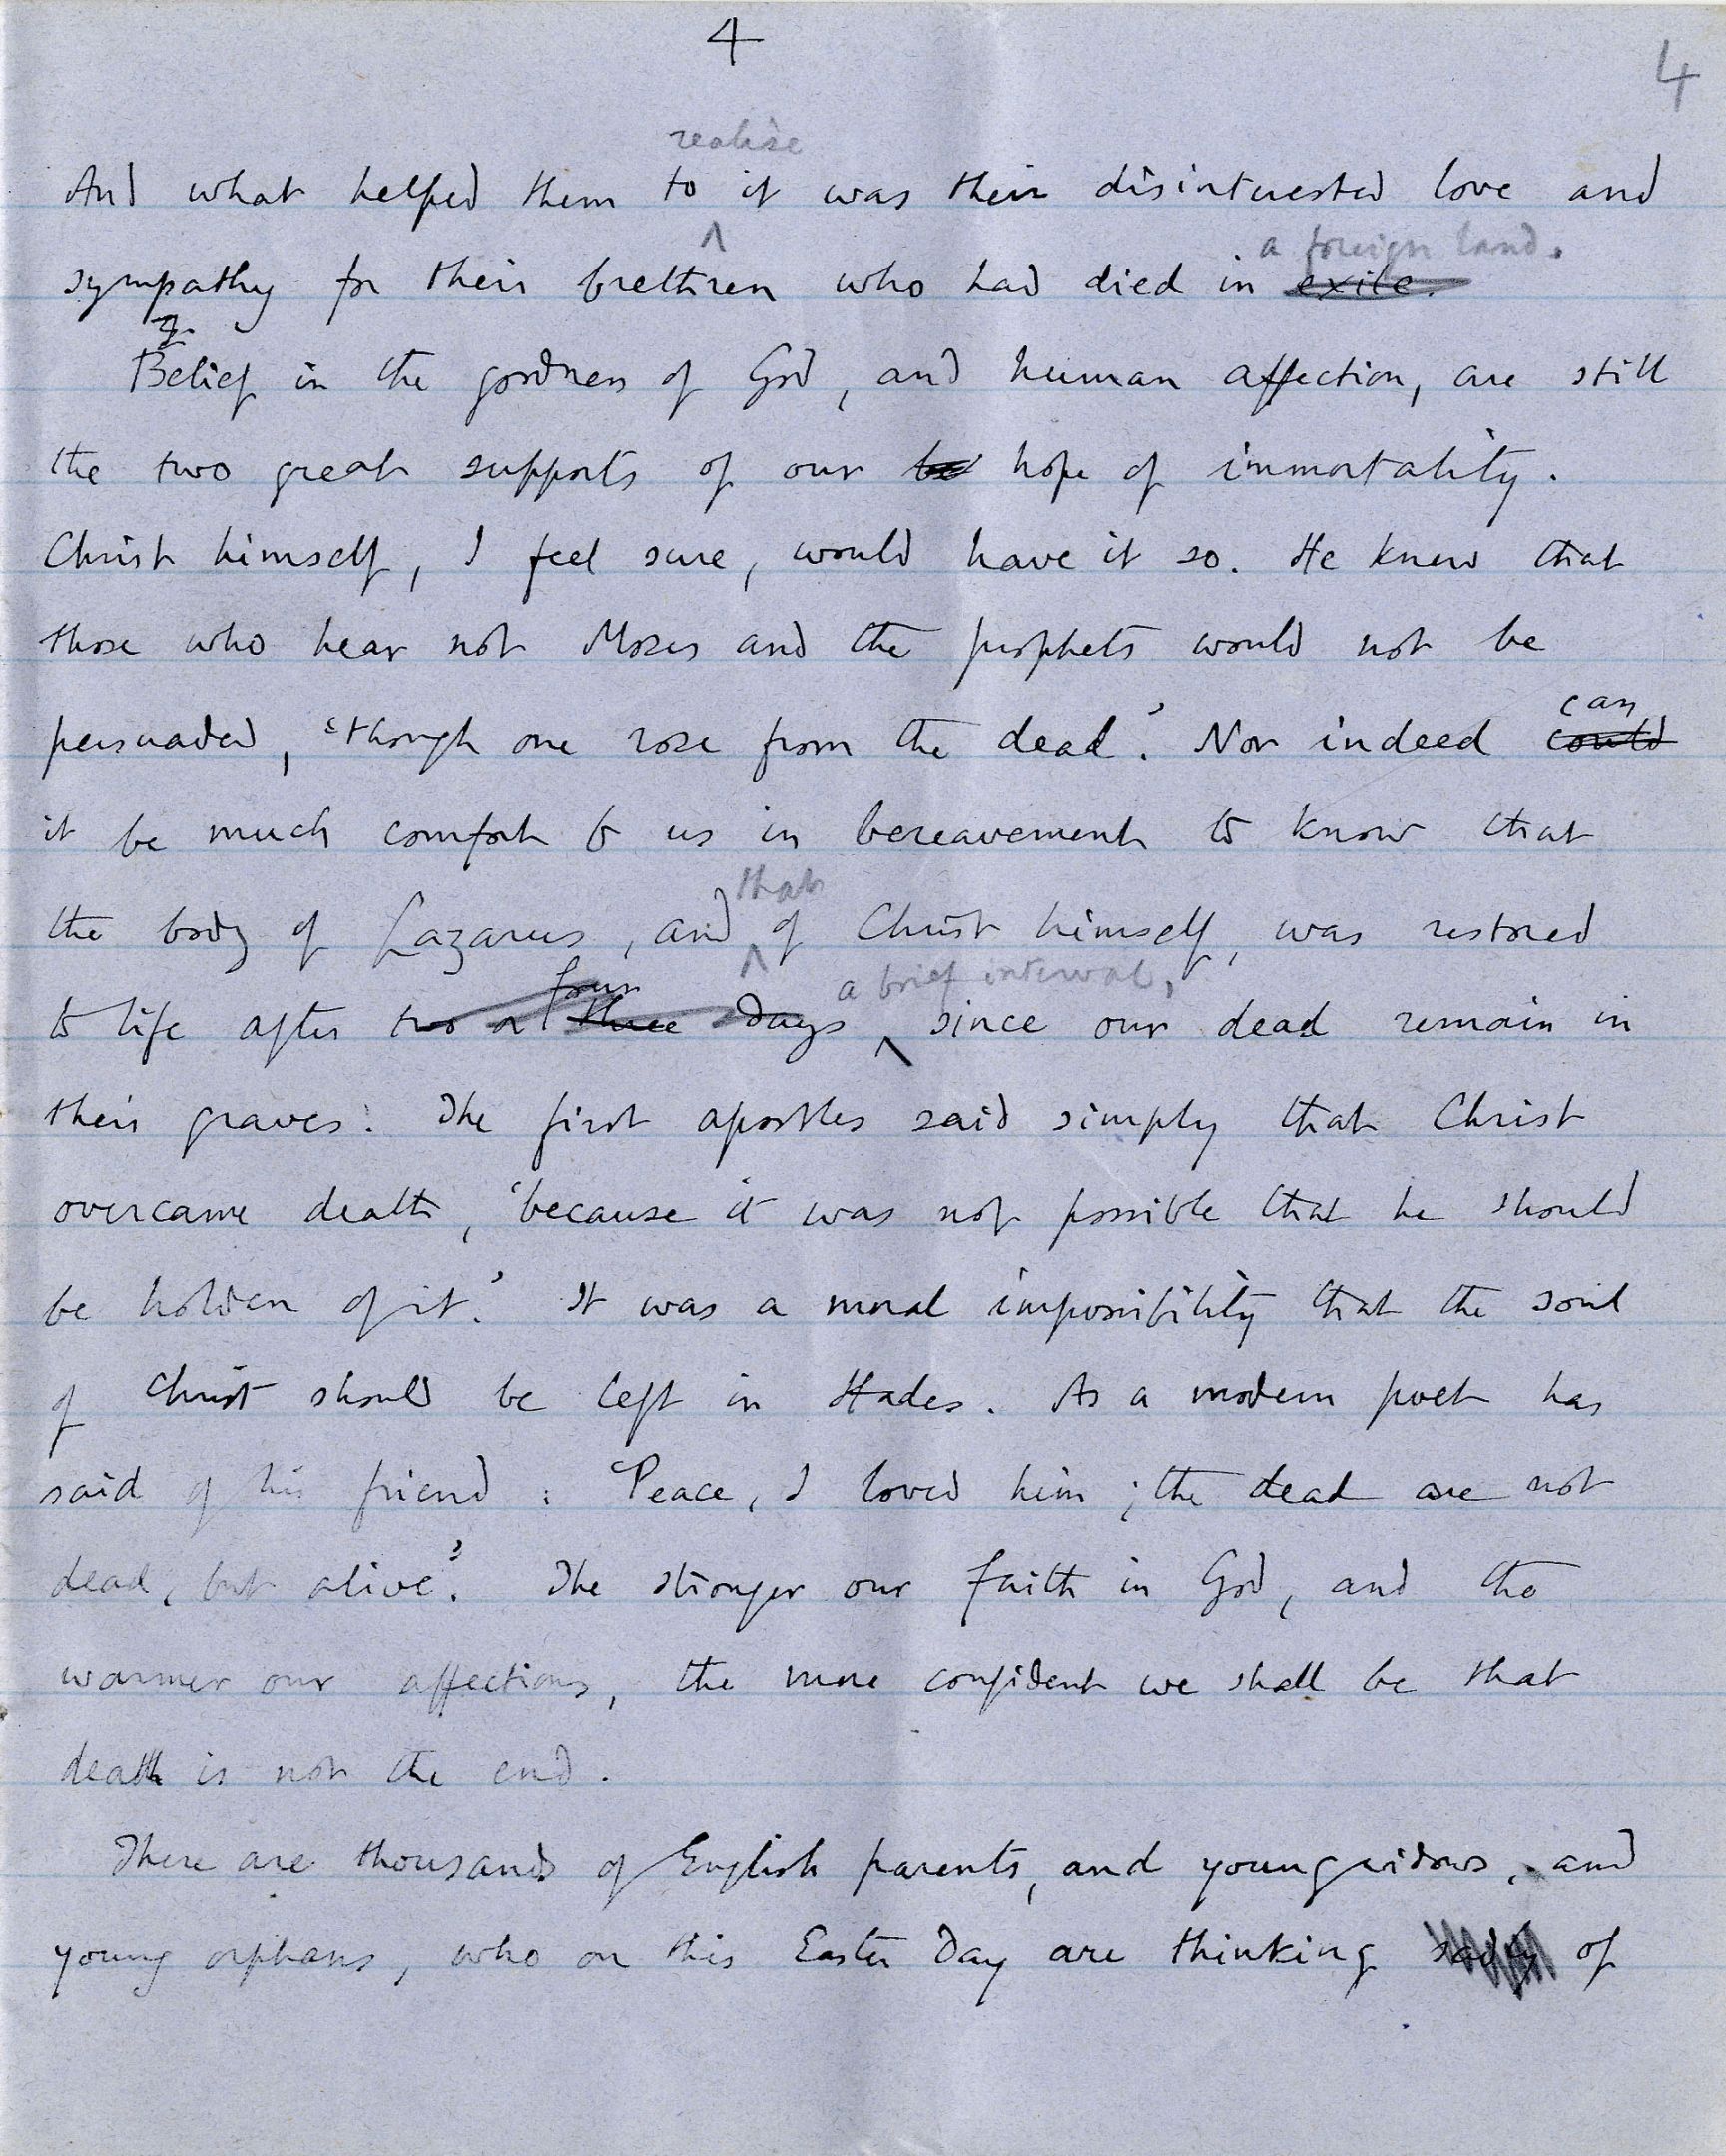 4
4
realise
And what helped them to it was their disinterested love and
a foreign land.
sympathy for their brethren who had died in exile.
Belief in the goodness of God, and human affection, are still
the two great supports of our hope of immortality.
Christ himself, I feel sure, would have it so. He knew that
those who hear not Moses and the prophets would not be
can
persuaded, ‘though one rose from the dead’. Nor indeed could
it be much comfort to us in bereavement to know that
that
the body of Lazarus, and of Christ himself, was restored
four a brief interval,
to life after two or three days since our dead remain in
their graves. The first apostles said simply that Christ
overcame death, ‘because it was not possible that he should
be holden of it.’ It was a moral impossibility that the soul
of Christ should be left in Hades. As a modern poet has
said of his friend: ‘Peace, I loved him; the dead are not
dead, but alive’. The stronger our faith in God, and the
warmer our affections, the more confident we shall be that
death is not the end.
There are thousands of English parents, and young widows, and
young orphans, who on this Easter Day are thinking sadly of